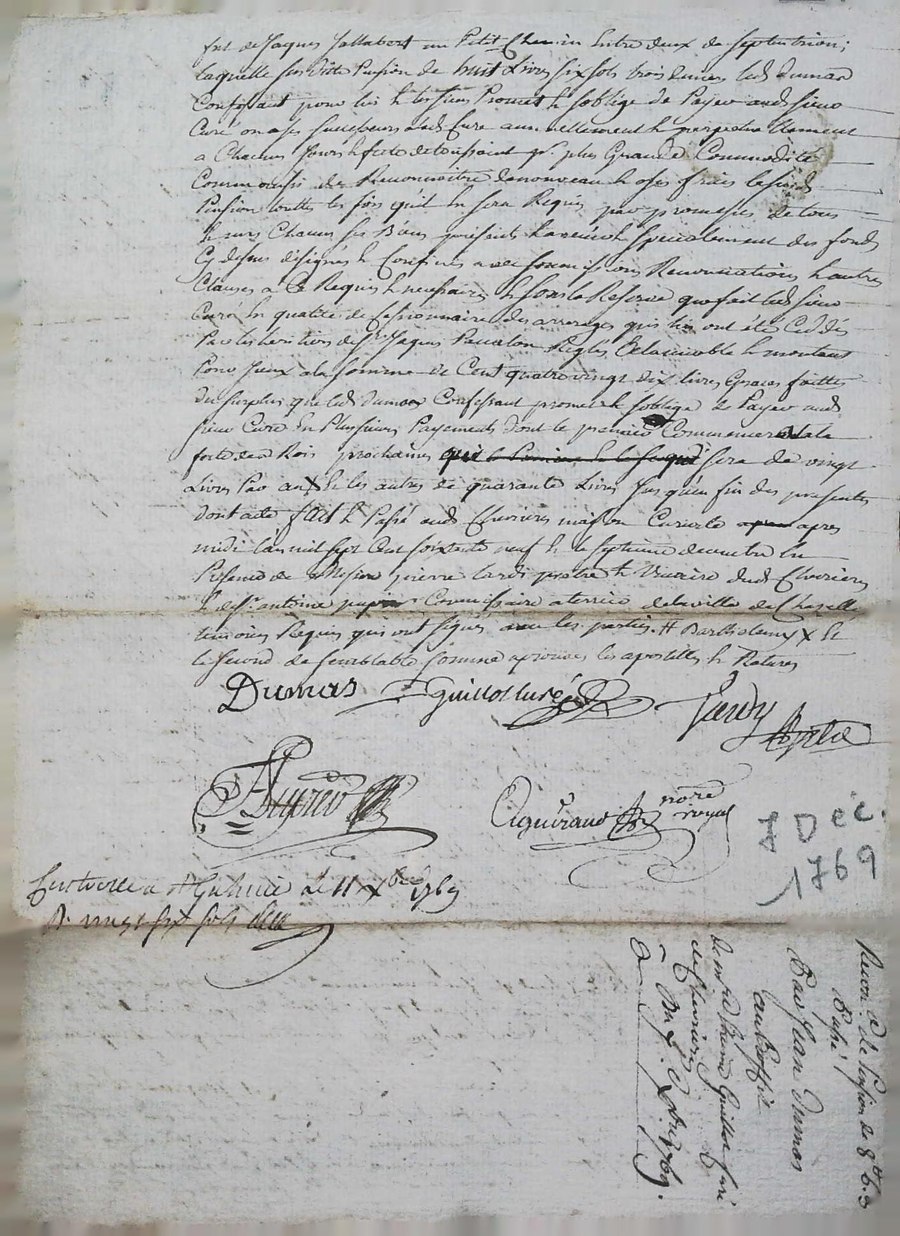 fut de Jaques Jallabert un Petit Chemin Entre deux de septentrion;
laquelle susditte Pension de huit Livres six sols trois deniers led. dumas
Confessant pour lui & les siens Promet & s'oblige de Payer aud. sieur
Curé ou a ses successeurs a lad. Cure annuellement & perpetuellement
a Chacun jour & fete de toussaint pr. plus Grande Commodité
Comm aussi de Reconnoitre denouveau & a ses frais lesusd.
Pension touttes les fois qu'il En sera Requis par promesses de tous
& uns Chacun ses Biens presents & avenir & specialement des fonds
Cy dessus designés & Confinés avec soumissions Renonciations & autres
Clauses a Ce Requises & necessaires & sous la Reserve que fait led. sieur
Curé En qualité de Cessionnaire des arrerages qui lui ont été Cedés
Par les heritiers de sr. Jaques Reglés a l'amiable & montant
Pour yceux a la somme de Cent quatre vingt dix livres Graces faittes
du surplus que led. dumas Confessant promet & s'oblige de Payer aud.
sieur Curé En Plusieurs Payements dont le premier Commencera a la
fete des Rois prochaines sera de vingt
Livres Par an X & les autres de quarante Livres jusqu'en fin des presentes
dont acte fait & Passé aud. Chevrieres maison Curiale apres
midi l'an mil sept Cent soixante neuf & le septieme decembre En
Presence de Messire pierre tardi pretre & Vicaire dud. Chevrieres
& de sr. antoine Commissaire a terrier de la ville de Chazelle
temoins Requis qui ont signés avec les parties. # Barthelemy X &
le second de semblable somme aprouvés les apostilles & Ratures
Dumas Guillot Curé Tardy
nore
royal
7 Déc.
1769
Controllé a St Galmier Le 11 Xbre 1769
R. six sols
Recon. de Pension de 8# 6s 3
Passé
Par Jean Dumas
au Proffit
de mre. Etienne Guillot Curé
de Chevrieres
Du 7. Xbre 1769.